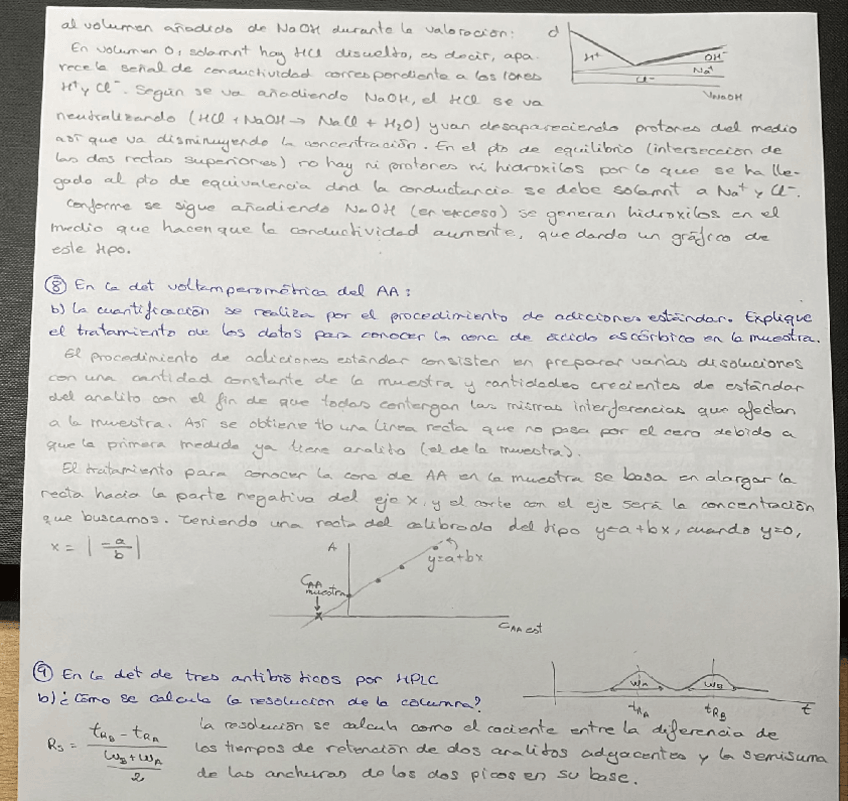 al volumen añadido de NaOH durante la valoración:
d
H+
OH-
Na+
Cl-
VNaOH
En volumen 0, solamnt hay HCl disuelto, es decir, apa-
rece la señal de conductividad correspondiente a los iones
H+ y Cl-. Según se va añadiendo NaOH, el HCl se va
neutralizando (HCl + NaOH → NaCl + H2O) y van desapareciendo protones del medio
así que va disminuyendo la concentración. En el pto de equilibrio (intersección de
las dos rectas superiores) no hay ni protones ni hidroxilos por lo que se ha lle-
gado al pto de equivalencia dnd la conductancia se debe solamnt a Na+ y Cl-.
Conforme se sigue añadiendo NaOH (en exceso) se generan hidroxilos en el
medio que hacen que la conductividad aumente, quedando un gráfico de
este tipo.
⑧ En la det voltamperométrica del AA:
b) La cuantificación se realiza por el procedimiento de adiciones estándar. Explique
el tratamiento de los datos para conocer la conc de ácido ascórbico en la muestra.
El procedimiento de adiciones estándar consisten en preparar varias disoluciones
con una cantidad constante de la muestra y cantidades crecientes de estándar
del analito con el fin de que todas contengan las mismas interferencias que afectan
a la muestra. Así se obtiene tb una línea recta que no pasa por el cero debido a
que la primera medida ya tiene analito (el de la muestra).
El tratamiento para conocer la conc de AA en la muestra se basa en alargar la
recta hacia la parte negativa del eje x, y el corte con el eje será la concentración
que buscamos. Teniendo una recta del calibrado del tipo y=a+bx, cuando y=0,
x = | -a/b |
A
y=a+bx
CAA
muestra
CAA est
⑨ En la det de tres antibióticos por HPLC
b) ¿Cómo se calcula la resolución de la columna?
WA
WB
tRA
tRB
t
Rs = (tRB - tRA) / ((WB + WA) / 2)
La resolución se calcula como el cociente entre la diferencia de
los tiempos de retención de dos analitos adyacentes y la semisuma
de las anchuras de los dos picos en su base.